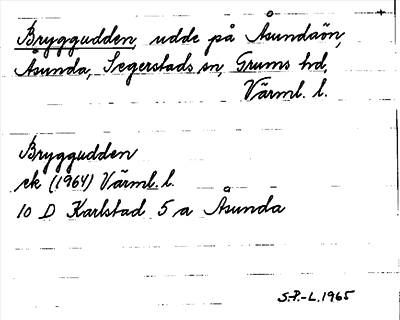 Bryggudden, udde på Åsundaön,
Åsunda, Segerstads sn, Grums hd,
Värml. l.
Bryggudden
ek (1964) Värml. l.
10 D Karlstad 5 a Åsunda
S.P.-L. 1965